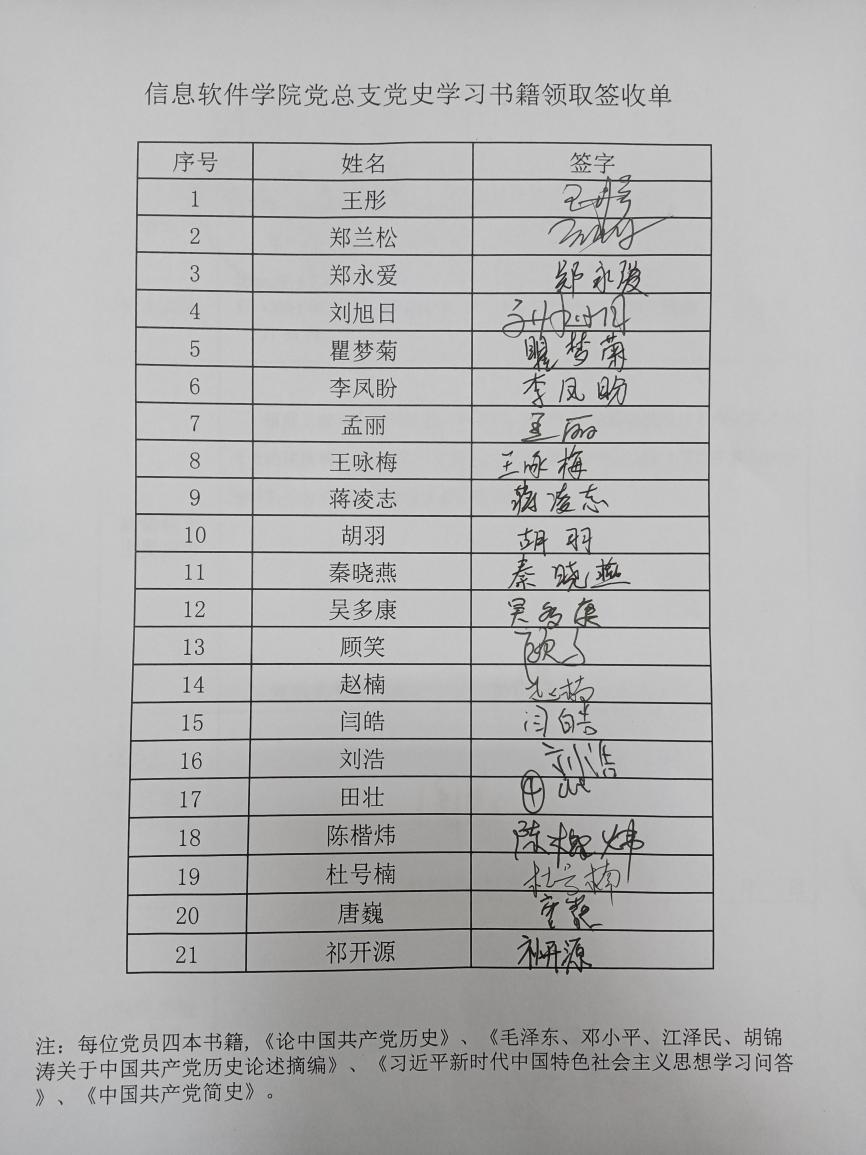 信息软件学院党总支党史学习书籍领取签收单
序号 姓名 签字
1 王彤 王彤
2 郑兰松
3 郑永爱 郑永爱
4 刘旭日 刘旭日
5 瞿梦菊 瞿梦菊
6 李凤盼 李凤盼
7 孟丽 孟丽
8 王咏梅 王咏梅
9 蒋凌志 蒋凌志
10 胡羽 胡羽
11 秦晓燕 秦晓燕
12 吴多康 吴多康
13 顾笑 顾笑
14 赵楠 赵楠
15 闫皓 闫皓
16 刘浩 刘浩
17 田壮 田壮
18 陈楷炜 陈楷炜
19 杜号楠 杜号楠
20 唐巍
21 祁开源 祁开源
注：每位党员四本书籍,《论中国共产党历史》、《毛泽东、邓小平、江泽民、胡锦
涛关于中国共产党历史论述摘编》、《习近平新时代中国特色社会主义思想学习问答
》、《中国共产党简史》。